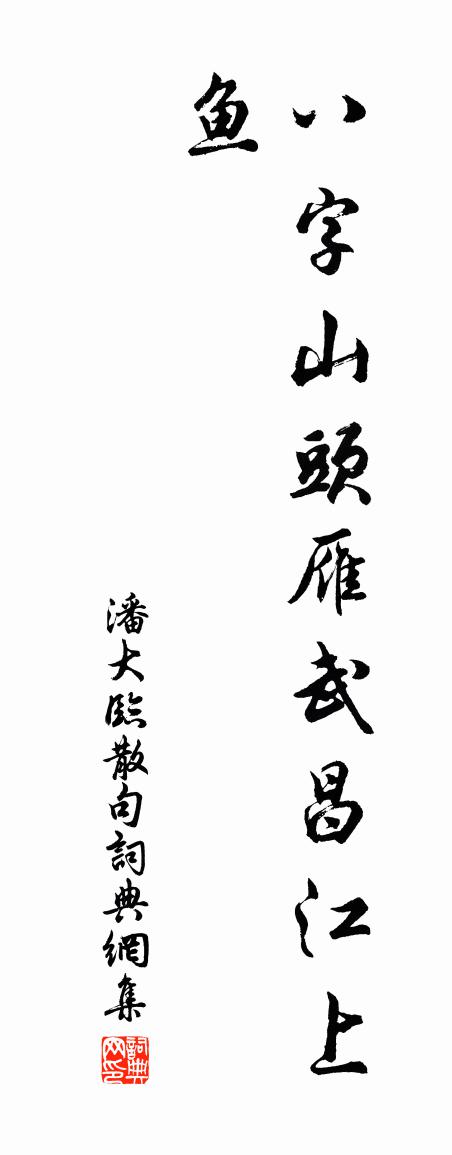 八字山頭雁武昌江上
鱼
潘大臨散句詞典網集
詞典网印